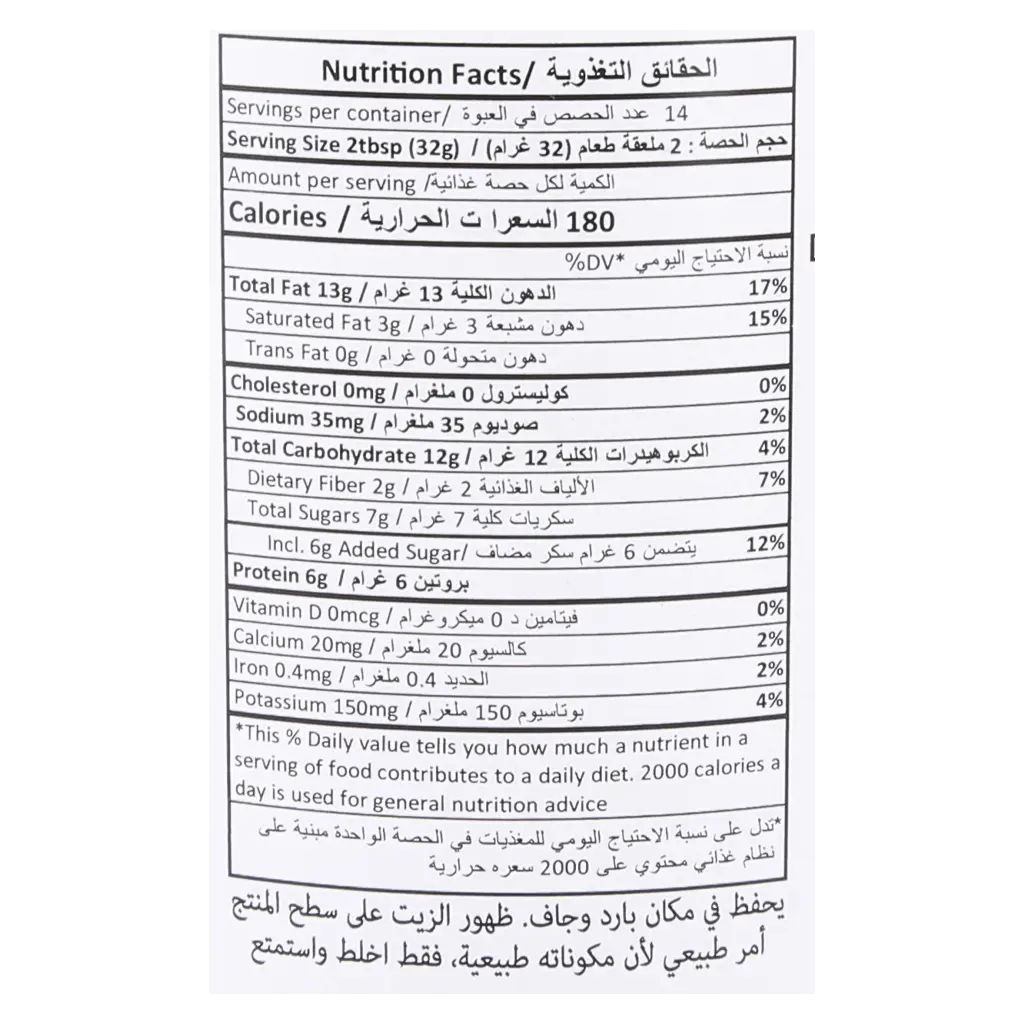 Nutrition Facts/ الحقائق التغذوية
Servings per container/ عدد الحصص في العبوة 14
Serving Size 2tbsp (32g) / حجم الحصة : 2 ملعقة طعام (32 غرام)
Amount per serving /الكمية لكل حصة غذائية
Calories / السعرا ت الحرارية 180
%DV* نسبة الاحتياج اليومي
Total Fat 13g / الدهون الكلية 13 غرام 17%
Saturated Fat 3g / دهون مشبعة 3 غرام 15%
Trans Fat 0g / دهون متحولة 0 غرام
Cholesterol 0mg / كوليسترول 0 ملغرام 0%
Sodium 35mg / صوديوم 35 ملغرام 2%
Total Carbohydrate 12g / الكربوهيدرات الكلية 12 غرام 4%
Dietary Fiber 2g / الألياف الغذائية 2 غرام 7%
Total Sugars 7g / سكريات كلية 7 غرام
Incl. 6g Added Sugar/ يتضمن 6 غرام سكر مضاف 12%
Protein 6g / بروتين 6 غرام
Vitamin D 0mcg / فيتامين د 0 ميكروغرام 0%
Calcium 20mg / كالسيوم 20 ملغرام 2%
Iron 0.4mg / الحديد 0.4 ملغرام 2%
Potassium 150mg / بوتاسيوم 150 ملغرام 4%
*This % Daily value tells you how much a nutrient in a
serving of food contributes to a daily diet. 2000 calories a
day is used for general nutrition advice
*تدل على نسبة الاحتياج اليومي للمغذيات في الحصة الواحدة مبنية على
نظام غذائي محتوي على 2000 سعره حرارية
يحفظ في مكان بارد وجاف. ظهور الزيت على سطح المنتج
أمر طبيعي لأن مكوناته طبيعية، فقط اخلط واستمتع